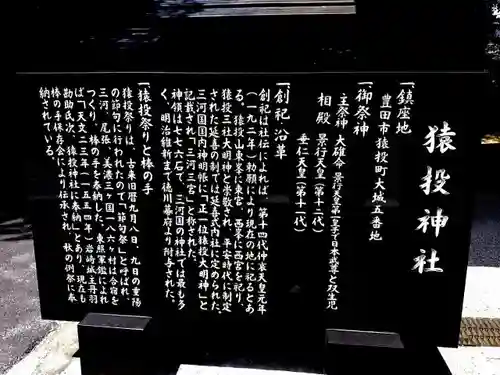 猿投神社
一鎮座地
豊田市猿投町大城五番地
一御祭神
主祭神 大碓命 景行天皇第一皇子・日本武尊と双生児
相殿 景行天皇(第十二代)
垂仁天皇(第十一代)
一創祀・沿革
創祀は社伝によれば、第十四代仲哀天皇元年
(一九二年)勅願により現在の地に祀るとあ
る。山上東峯に東宮、西峯に西宮を祀り、
猿投三社大明神と崇敬され、平安時代に制定
された延喜の制では延喜式内社に定められた。
三河国国内神明帳に「正一位猿投大明神」と
記載され「三河三宮」と称された。
神領は七七六石で、三河国の神社では最も多
く、明治維新まで徳川幕府より附与された。
一猿投祭りと棒の手
猿投祭りは、古来旧暦九月八日、九日の重陽
の節句に行われたので「節句祭」と呼ばれ、
三河、尾張、美濃三ヶ国「一八六村」は合宿を
つくり、棒の手を奉納した。東照軍鑑によれ
ば「天文二三年(一五五四年)岩崎城主丹羽
勘助氏次、猿投神社に奉納」とあり、現在も
棒の手保存会により伝承され、秋の例祭に奉
納されている。